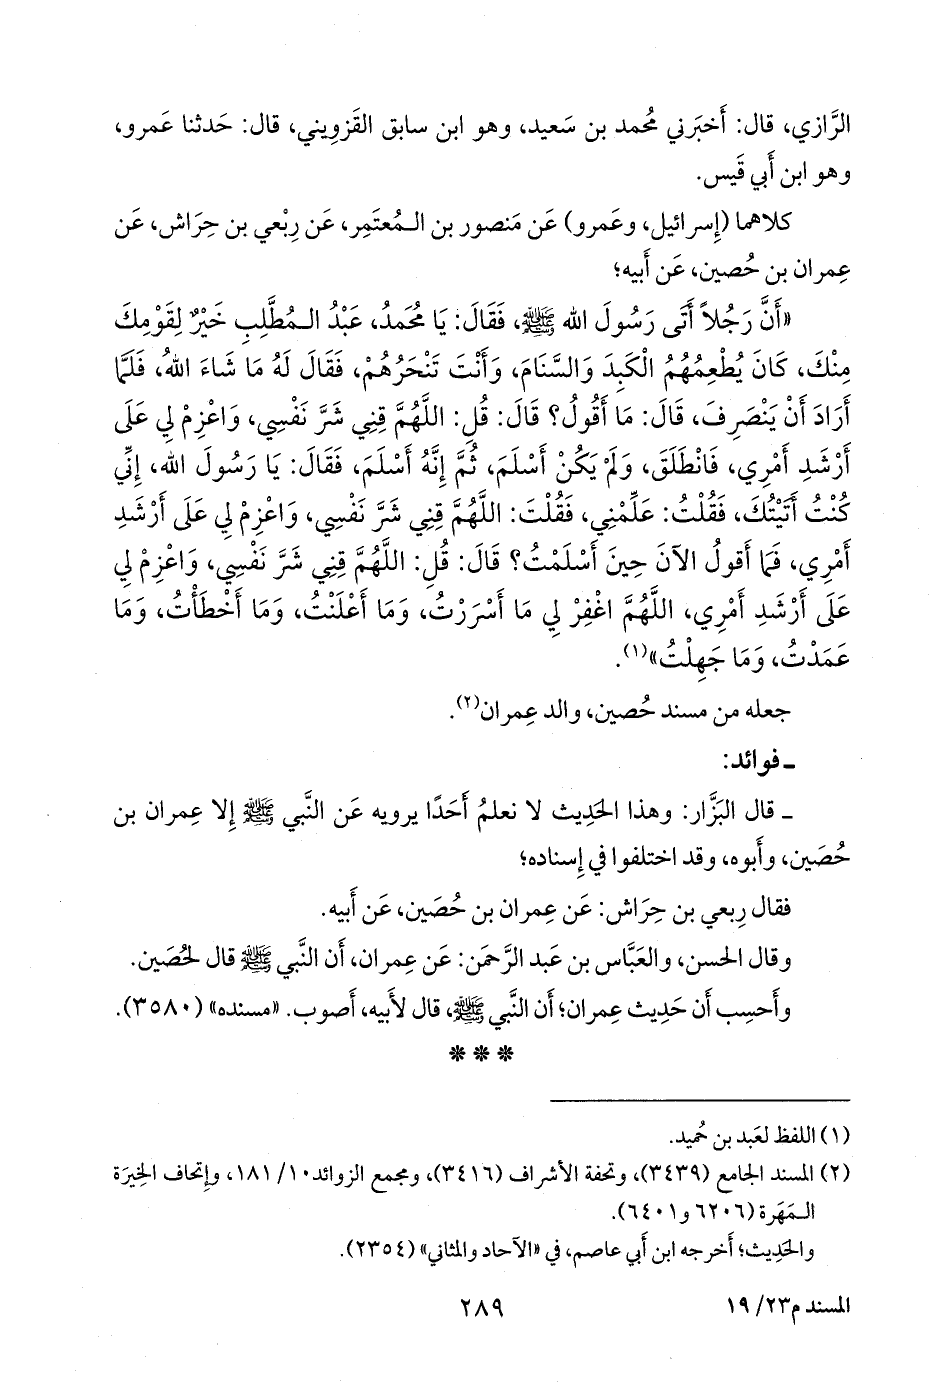 الرَّازي، قال: أَخبَرني مُحمد بن سَعيد، وهو ابن سابق القَزويني، قال: حَدثنا عَمرو،
وهو ابن أَبي قَيس.
كلاهما (إِسرائيل، وعَمرو) عَن مَنصور بن الـمُعتَمِر، عَن رِبْعي بن حِرَاش، عَن
عِمران بن حُصين، عَن أَبيه؛
«أَنَّ رَجُلاً أَتَى رَسُولَ الله ﷺ، فَقَالَ: يَا مُحَمدُ، عَبْدُ الـمُطَّلِبِ خَيْرٌ لِقَوْمِكَ
مِنْكَ، كَانَ يُطْعِمُهُمُ الْكَبِدَ وَالسَّنَامَ، وَأَنْتَ تَنْحَرُهُمْ، فَقَالَ لَهُ مَا شَاءَ اللهُ، فَلَمَّا
أَرَادَ أَنْ يَنْصَرِفَ، قَالَ: مَا أَقُولُ؟ قَالَ: قُلِ: اللَّهُمَّ قِنِي شَرَّ نَفْسِي، وَاعْزِمْ لِي عَلَى
أَرْشَدِ أَمْرِي، فَانْطَلَقَ، وَلَمْ يَكُنْ أَسْلَمَ، ثُمَّ إِنَّهُ أَسْلَمَ، فَقَالَ: يَا رَسُولَ الله، إِنِّي
كُنْتُ أَتَيْتُكَ، فَقُلْتُ: عَلِّمْنِي، فَقُلْتَ: اللَّهُمَّ قِنِي شَرَّ نَفْسِي، وَاعْزِمْ لِي عَلَى أَرْشَدِ
أَمْرِي، فَمَا أَقُولُ الآنَ حِينَ أَسْلَمْتُ؟ قَالَ: قُلِ: اللَّهُمَّ قِنِي شَرَّ نَفْسِي، وَاعْزِمْ لِي
عَلَى أَرْشَدِ أَمْرِي، اللَّهُمَّ اغْفِرْ لِي مَا أَسْرَرْتُ، وَمَا أَعْلَنْتُ، وَمَا أَخْطَأْتُ، وَمَا
عَمَدْتُ، وَمَا جَهِلْتُ»(١).
جعله من مسند حُصين، والد عِمران(٢).
ـ فوائد:
ـ قال البَزَّار: وهذا الحَدِيث لا نعلمُ أَحَدًا يرويه عَن النَّبي ﷺ إِلا عِمران بن
حُصَين، وأَبوه، وقد اختلفوا في إِسناده؛
فقال رِبعي بن حِرَاش: عَن عِمران بن حُصَين، عَن أَبيه.
وقال الحسن، والعَبَّاس بن عَبد الرَّحمَن: عَن عِمران، أَن النَّبي ﷺ قال لحُصَين.
وأَحسِب أَن حَدِيث عِمران؛ أَن النَّبي ﷺ، قال لأَبيه، أَصوب. «مسنده» (٣٥٨٠).
***
(١) اللفظ لعَبد بن حُميد.
(٢) المسند الجامع (٣٤٣٩)، وتحفة الأشراف (٣٤١٦)، ومجمع الزوائد١٠/ ١٨١، وإِتحاف الخِيرَة
الـمَهَرة (٦٢٠٦ و٦٤٠١).
والحَدِيث؛ أَخرجه ابن أَبي عاصم، في «الآحاد والمثاني» (٢٣٥٤).
المسند م٢٣/ ١٩
٢٨٩